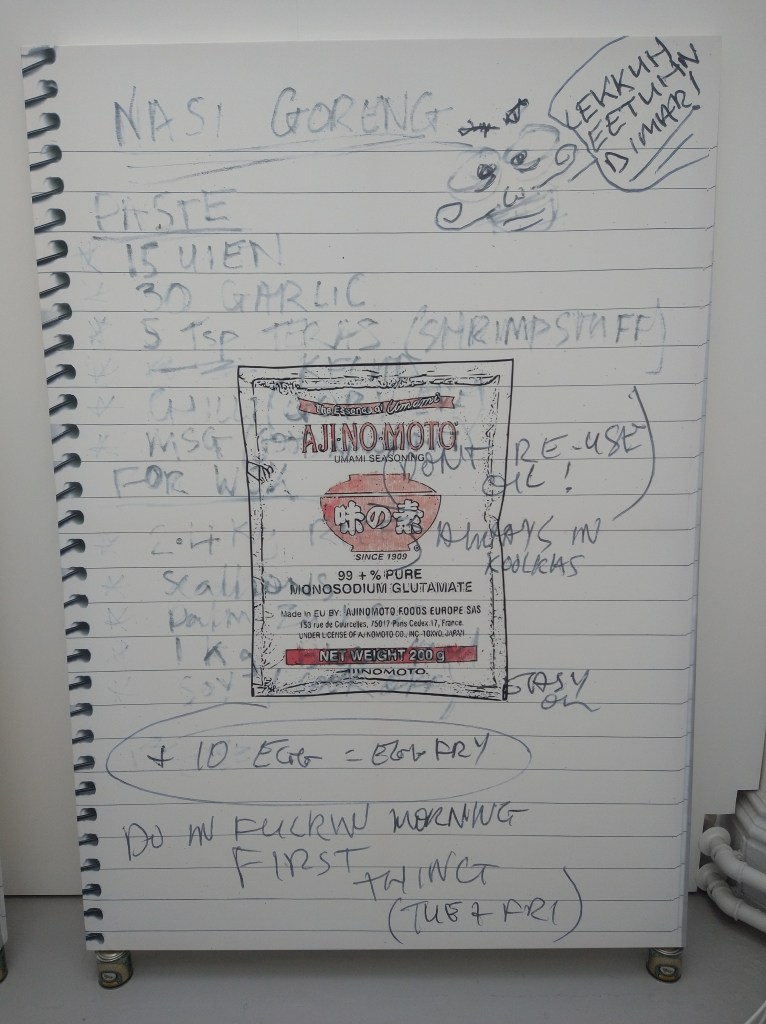 NASI GORENG
LEKKUH
EETUHN
DIMAR!
PASTE
* 15 UIEN
* 30 GARLIC
* 5 Tsp TRAS (SHRIMPSTUFF)
*
*
* MSG
The Essence of Umami
AJI-NO-MOTO
UMAMI SEASONING
味の素
SINCE 1909
99 + % PURE
MONOSODIUM GLUTAMATE
Made in EU BY: AJINOMOTO FOODS EUROPE SAS
153 rue de Courcelles, 75017 Paris Cedex 17, France.
UNDER LICENSE OF AJINOMOTO CO., INC. TOKYO, JAPAN
NET WEIGHT 200 g
AJINOMOTO
(DONT RE-USE
OIL!
ALWAYS IN
KOELKAS
FOR WOK
*
* Scallions
*
* 1 KG
* SOY
EASY
ON
+ 10 EGG = EGG FRY
DO IN FUCKIN MORNING
FIRST THING
(TUE + FRI)